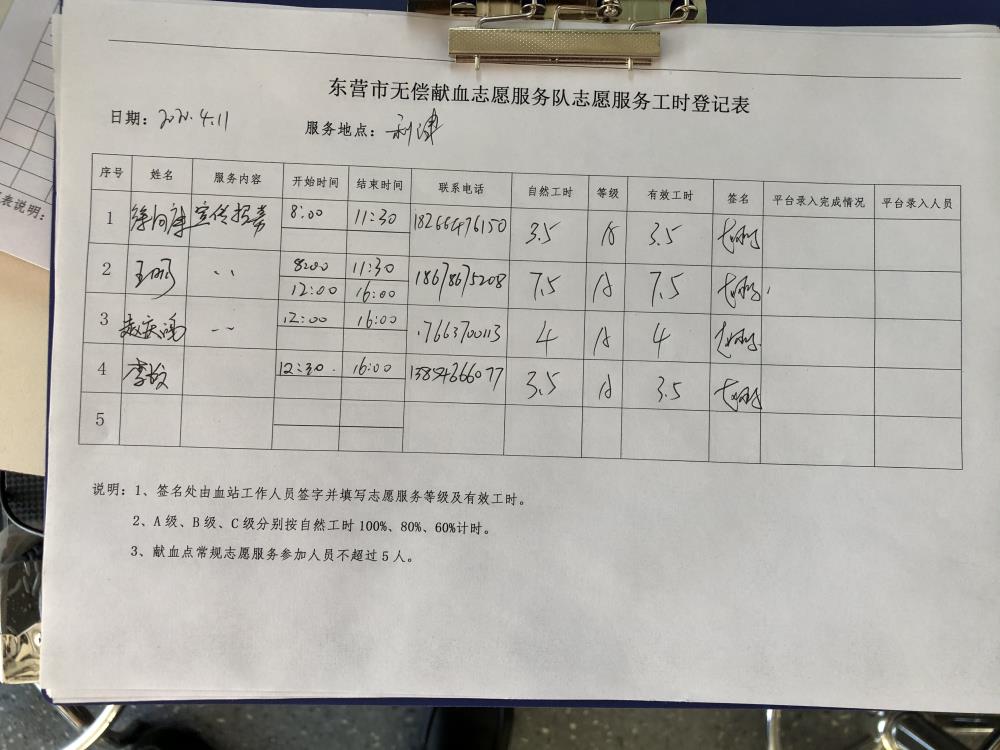 东营市无偿献血志愿服务队志愿服务工时登记表
日期: 服务地点:
序号 姓名 服务内容 开始时间 结束时间 联系电话 自然工时 等级 有效工时 签名 平台录入完成情况 平台录入人员
1 宣传招募 8:00 11:30 18266476150 3.5 A 3.5
2 8:00 11:30 18678675208 7.5 A 7.5
12:00 16:00
3 12:00 16:00 17663700113 4 A 4
4 李敏 12:30 16:00 13854666077 3.5 A 3.5
5
说明:1、签名处由血站工作人员签字并填写志愿服务等级及有效工时。
2、A 级、B 级、C 级分别按自然工时 100%、80%、60%计时。
3、献血点常规志愿服务参加人员不超过 5 人。
表说明: